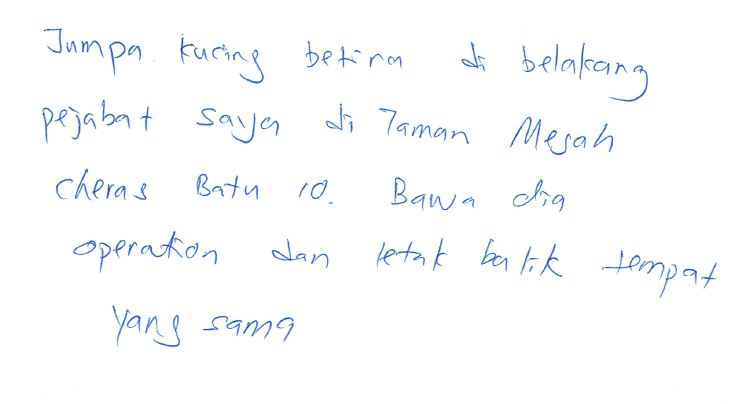 Jumpa kucing betina di belakang
pejabat saya di Taman Megah
cheras Batu 10. Bawa dia
operation dan letak balik tempat
yang sama